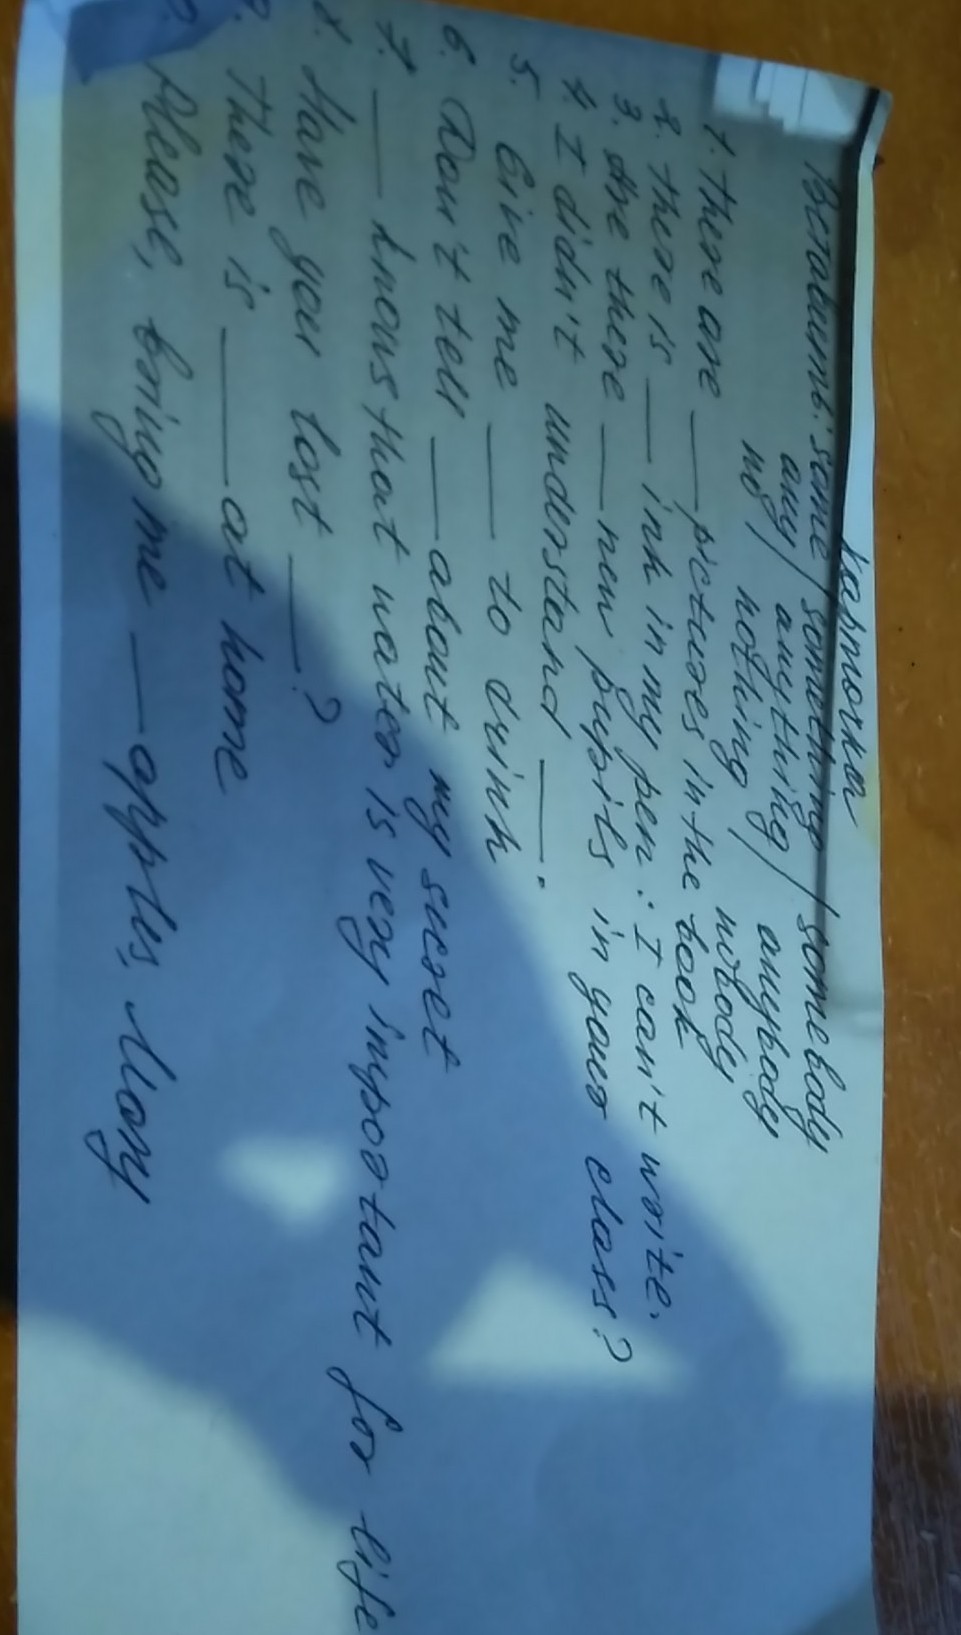 Карточка
Вставить: some / something / somebody
any / anything / anybody
no / nothing / nobody
1. There are ___ pictures in the book
2. There is ___ ink in my pen: I can't write.
3. Are there ___ new pupils in your class?
4. I didn't understand ___.
5. Give me ___ to drink
6. Don't tell ___ about my secret
7. ___ knows that water is very important for life
8. Have you lost ___?
9. There is ___ at home
Please, bring me ___ apples, Mary